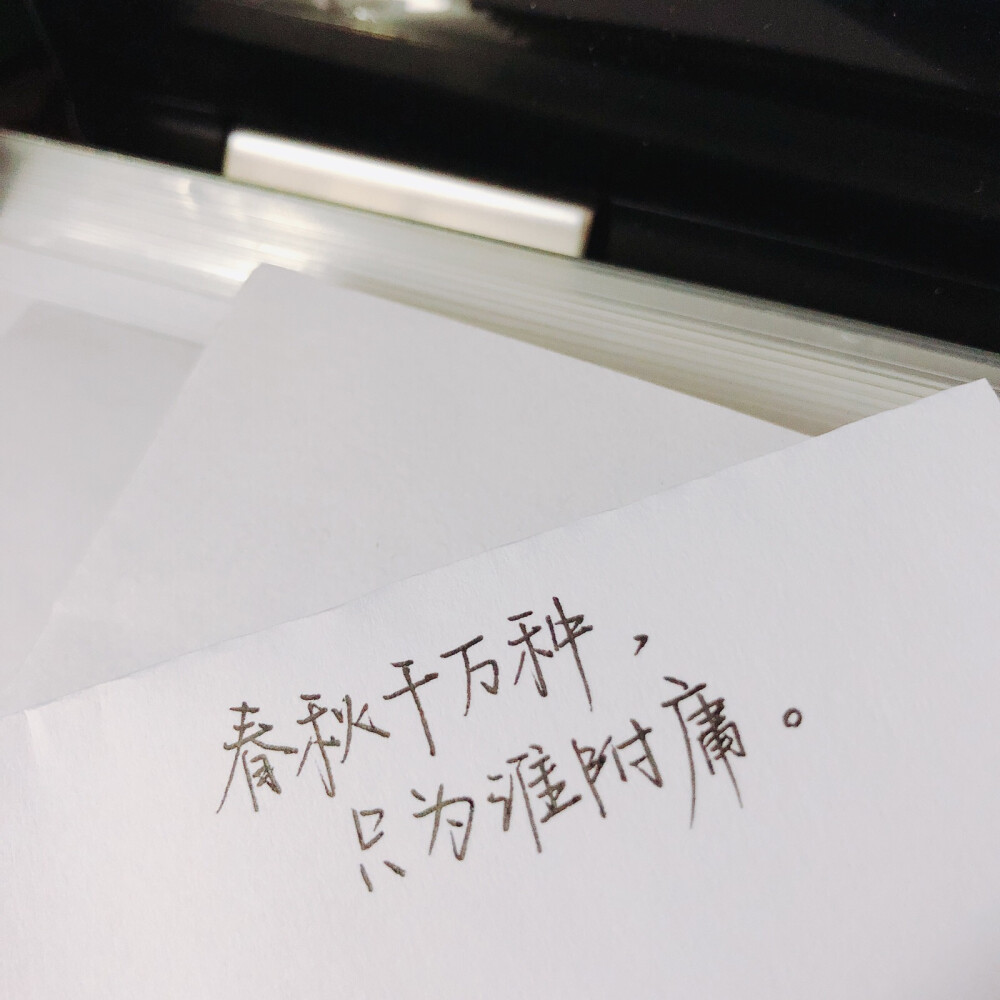 春秋千万种，
只为淮附庸。